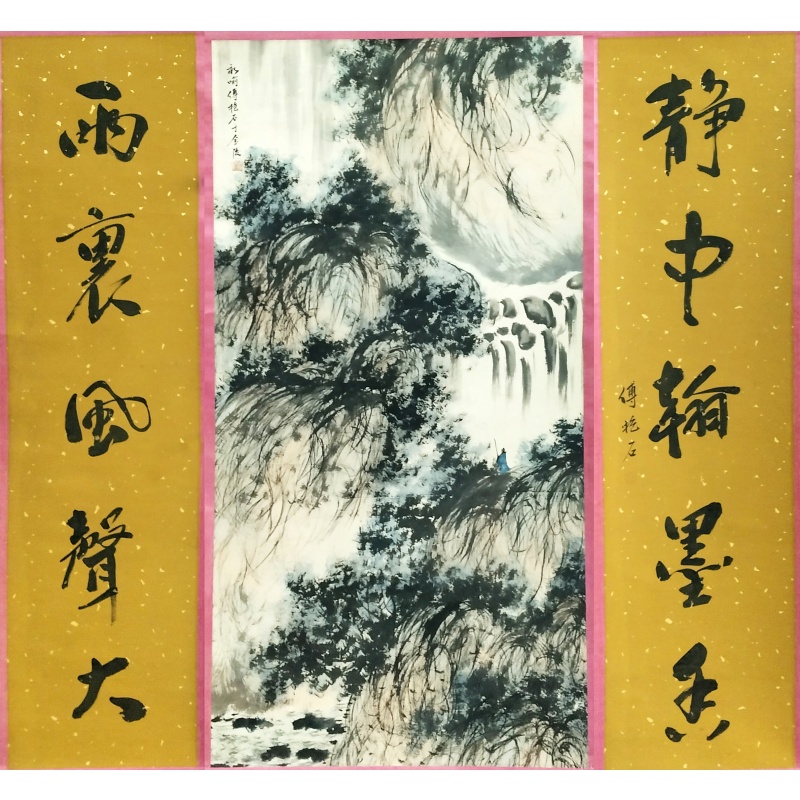 靜中翰墨香
傅抱石
新喻傅抱石于金陵
雨裏風聲大